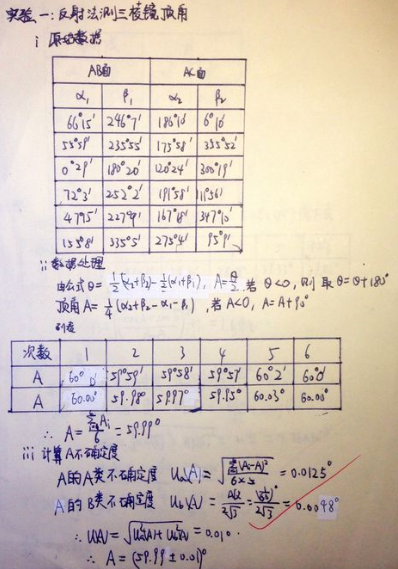 实验一:反射法测三棱镜顶角
i 原始数据
AB面 AC面
α₁ β₁ α₂ β₂
66°15′ 246°7′ 186°16′ 6°10′
55°59′ 235°55′ 175°58′ 355°52′
0°29′ 180°20′ 120°24′ 300°19′
72°3′ 252°2′ 191°58′ 11°56′
47°5′ 227°9′ 167°8′ 347°10′
155°8′ 335°5′ 275°4′ 95°9′
ii 数据处理
由公式 θ = ½(α₂+β₂) - ½(α₁+β₁), A = θ/2, 若 θ<0, 则取 θ=θ+180°
顶角A = ¼(α₂+β₂-α₁-β₁), 若A<0, A=A+90°
列表
次数 1 2 3 4 5 6
A 60°0′ 59°59′ 59°58′ 59°57′ 60°2′ 60°0′
A 60.00° 59.98° 59.97° 59.95° 60.03° 60.00°
∴ A = ΣAᵢ/6 = 59.99°
iii 计算A不确定度
A的A类不确定度 Ua(A) = √(Σ(Aᵢ-A)²/(6×5)) = 0.0125°
A的B类不确定度 Ub(A) = 0.0098°
∴ U(A) = √(Ua²(A)+Ub²(A)) = 0.010
∴ A = (59.99 ± 0.01)°